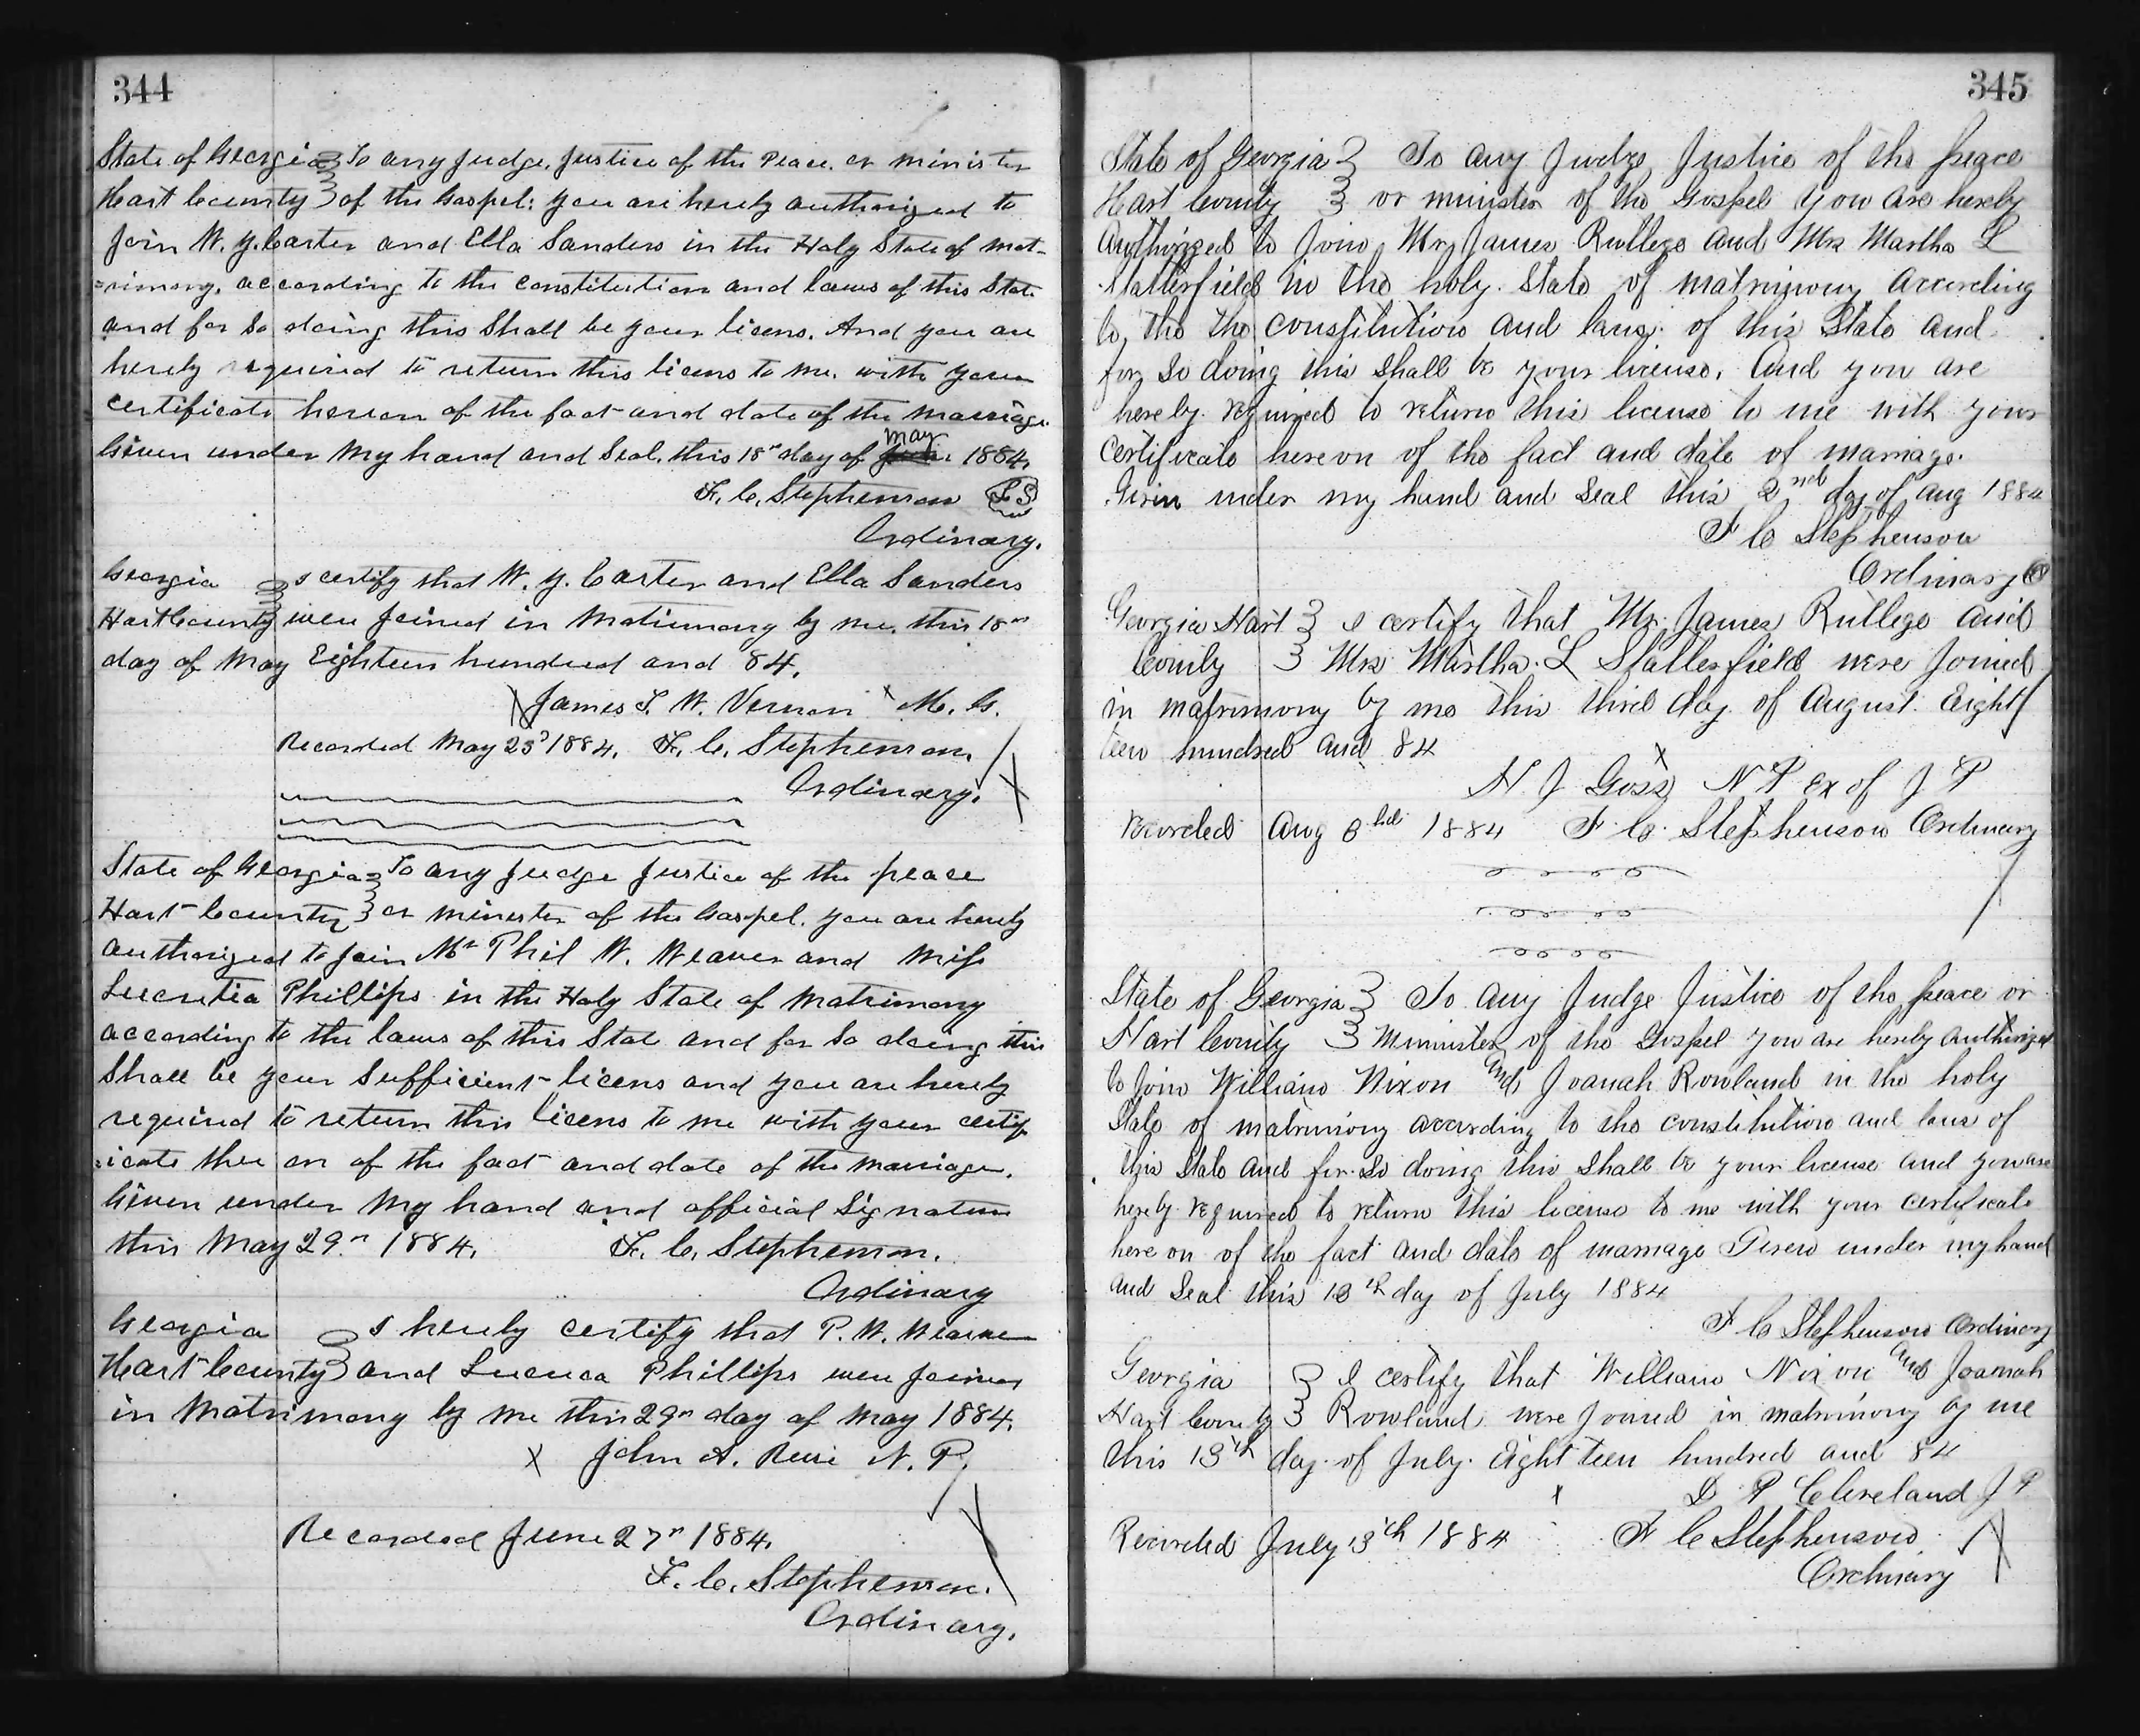 344
State of Georgia To any Judge, Justice of the Peace, or minister
Hart County of the Gospel: you are hereby authorized to
Join W. Y. Carter and Ella Sanders in the Holy State of mat-
=rimony, according to the constitution and laws of this State
and for so doing this Shall be your licens. And you are
hereby required to return this licens to me, with your
certificate hereon of the fact and date of the marriage.
Given under my hand and Seal, this 18th day of May 1884,
F. C. Stephenson LS
Ordinary.
Georgia I certify that W. Y. Carter and Ella Sanders
Hart County were Joined in Matrimony by me, this 18th
day of May Eighteen hundred and 84,
James T. W. Vernon M. G.
Recorded May 23d 1884, F. C. Stephenson,
Ordinary.
State of Georgia To any Judge Justice of the peace
Hart County or minester of the Gospel, you are hereby
authorized to join Mr Phil W. Weaver and Miss
Lucretia Phillips in the Holy State of Matrimony
according to the laws of this State and for so doing this
Shall be your Sufficient licens and you are hereby
required to return this licens to me with your certif
=icate there on of the fact and date of the marriage.
Given under my hand and official Signature
this May 29th 1884, F. C. Stephenson.
Ordinary
Georgia I hereby certify that P. W. Weaver
Hart County and Phillips were joined
in Matrimony by me this 29th day of May 1884,
John A. N. P.
Recorded June 27th 1884,
F. C. Stephenson.
Ordinary.
345
State of Georgia To any Judge Justice of the peace
Hart County or minister of the Gospel you are hereby
Authorized to Join Mr James Rutlege and Mrs Martha L
Statterfield in the holy State of matrimony according
to, the the constitution and laws of this State and
for so doing this shall be your license, and you are
hereby required to return this license to me with your
certificate hereon of the fact and date of marriage.
Given under my hand and seal this 2nd day of Aug 1884
F C Stephenson
Ordinary
Georgia Hart I certify that Mr. James Rutlege and
County Mrs Martha L Statterfield were Joined
in matrimony by me this third day of August Eight
teen hundred and 84
H J Goss N P Ex of J P
recorded Aug 1884 F. C. Stephenson Ordinary
State of Georgia To any Judge Justice of the peace or
Hart County Minister of the Gospel you are hereby authorized
to join William Nixon and Joanah Rowland in the holy
State of matrimony according to the constitution and laws of
this State and for so doing this shall be your license and you are
hereby required to return this license to me with your certificate
here on of the fact and date of marriage Given under my hand
and Seal this 13th day of July 1884
F C Stephenson Ordinary
Georgia I certify that William Nixon and Joanah
Hart County Rowland were Joined in matrimony by me
this 13th day of July Eight teen hundred and 84
D P Cleveland J P
Recorded July 13th 1884 F C Stephenson
Ordinary